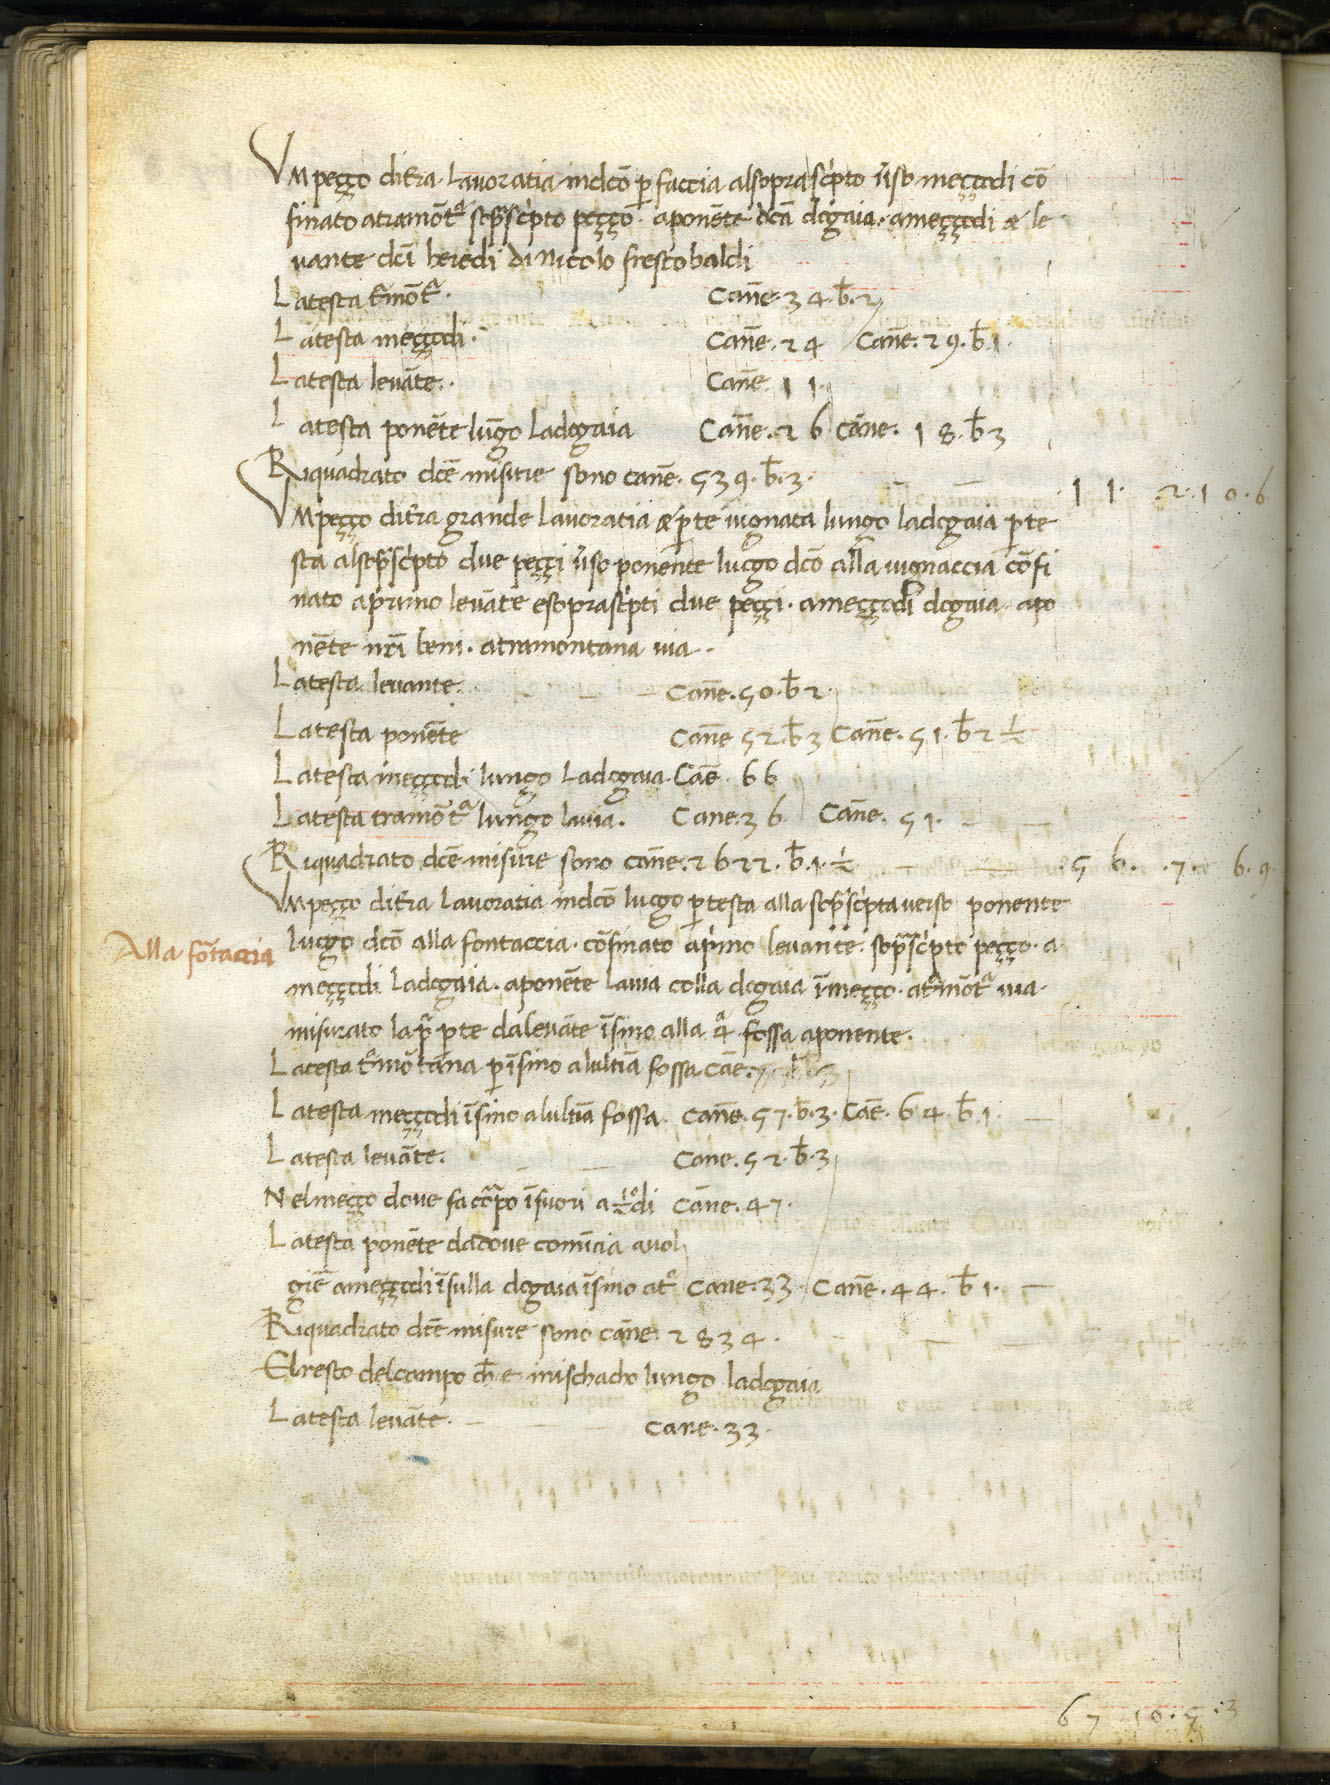 Vm peçço ditr̃a Lavoratia indcõ ꝑ faccia alsoprascripto ũso meççodi cõ
finato atramõtᵃ sop̃scripto peçço · aponẽte dc̃a dogaia · ameççodi ⁊ le
vante dc̃i heredi di Nicolo frescobaldi
Latesta tᵃmõtᵃ · Canne · 34 · b̃ · 2
Latesta meççodi · Canne · 24 Canne · 29 · b̃ 1 ·
Latesta levãte · Canne 11 ·
Latesta ponẽte lũgo ladogaia Canne · 26 Cãne · 18 · b̃ 3
Riquadrato dcẽ misure sono canẽ · 539 · b̃ · 3 · 11 · 2 · 10 · 6
Vm peçço ditr̃a grande Lavoratia ⁊ ꝑte vignata lungo ladogaia ꝑ te
sta alsop̃scripto due peççi ũso ponente lucgo dcõ alla vignaccia cõfi
nato aprimo levãte esoprascripti due peççi · ameççodi dogaia · apo
nẽte nr̃i beni · atramontana via ·
Latesta levante · Canẽ · 50 · b̃ 2 ·
Latesta ponẽte Canẽ 52 · b̃ 3 Canẽ · 51 · b̃ 2 ½
Latesta meççodi lungo Ladogaia · Caẽ · 66
Latesta tramõtᵃ lungo lavia · Cane · 36 Cãne · 51 ·
Riquadrato dcẽ misure sono cãne · 2622 · b̃ · 1 · ½ 56 · 7 · 6 · 9
Vm peçço ditr̃a Lavoratia indcõ lucgo ꝑ testa alla sop̃scripta verso ponente
Alla fõtaccia
lucgo dcõ alla fontaccia · cõfinato aprimo levante · sop̃scripto peçço · a
meççodi Ladogaia · aponẽte Lavia colla dogaia ĩmeçço · atᵃmõtᵃ via ·
misurato la pᵃ ꝑte dalevãte ĩsino alla 4ᵃ fossa aponente ·
Latesta tᵃmõtana ꝑ ĩsino alultĩa fossa Caẽ ·
Latesta meççodi ĩsino alultĩa fossa · Canẽ · 57 · b̃ · 3 · Caẽ · 64 · b̃ · 1 ·
Latesta levãte · Cane · 52 · b̃ · 3
Nelmeçço dove fa cãpo ĩfuori a ½º di Cãne · 47 ·
Latesta ponẽte dadove comĩcia avol
giẽ ameççodi ĩsulla dogaia ĩsino atᵃ Cane · 33 · Canẽ · 44 · b̃ 1 ·
Riquadrato dcẽ misure sono cãne · 2834 ·
Elresto delcampo ch̃ e inischacho lungo ladogaia
Latesta levãte · Cane · 33 ·
67 · 10 · 5 · 3